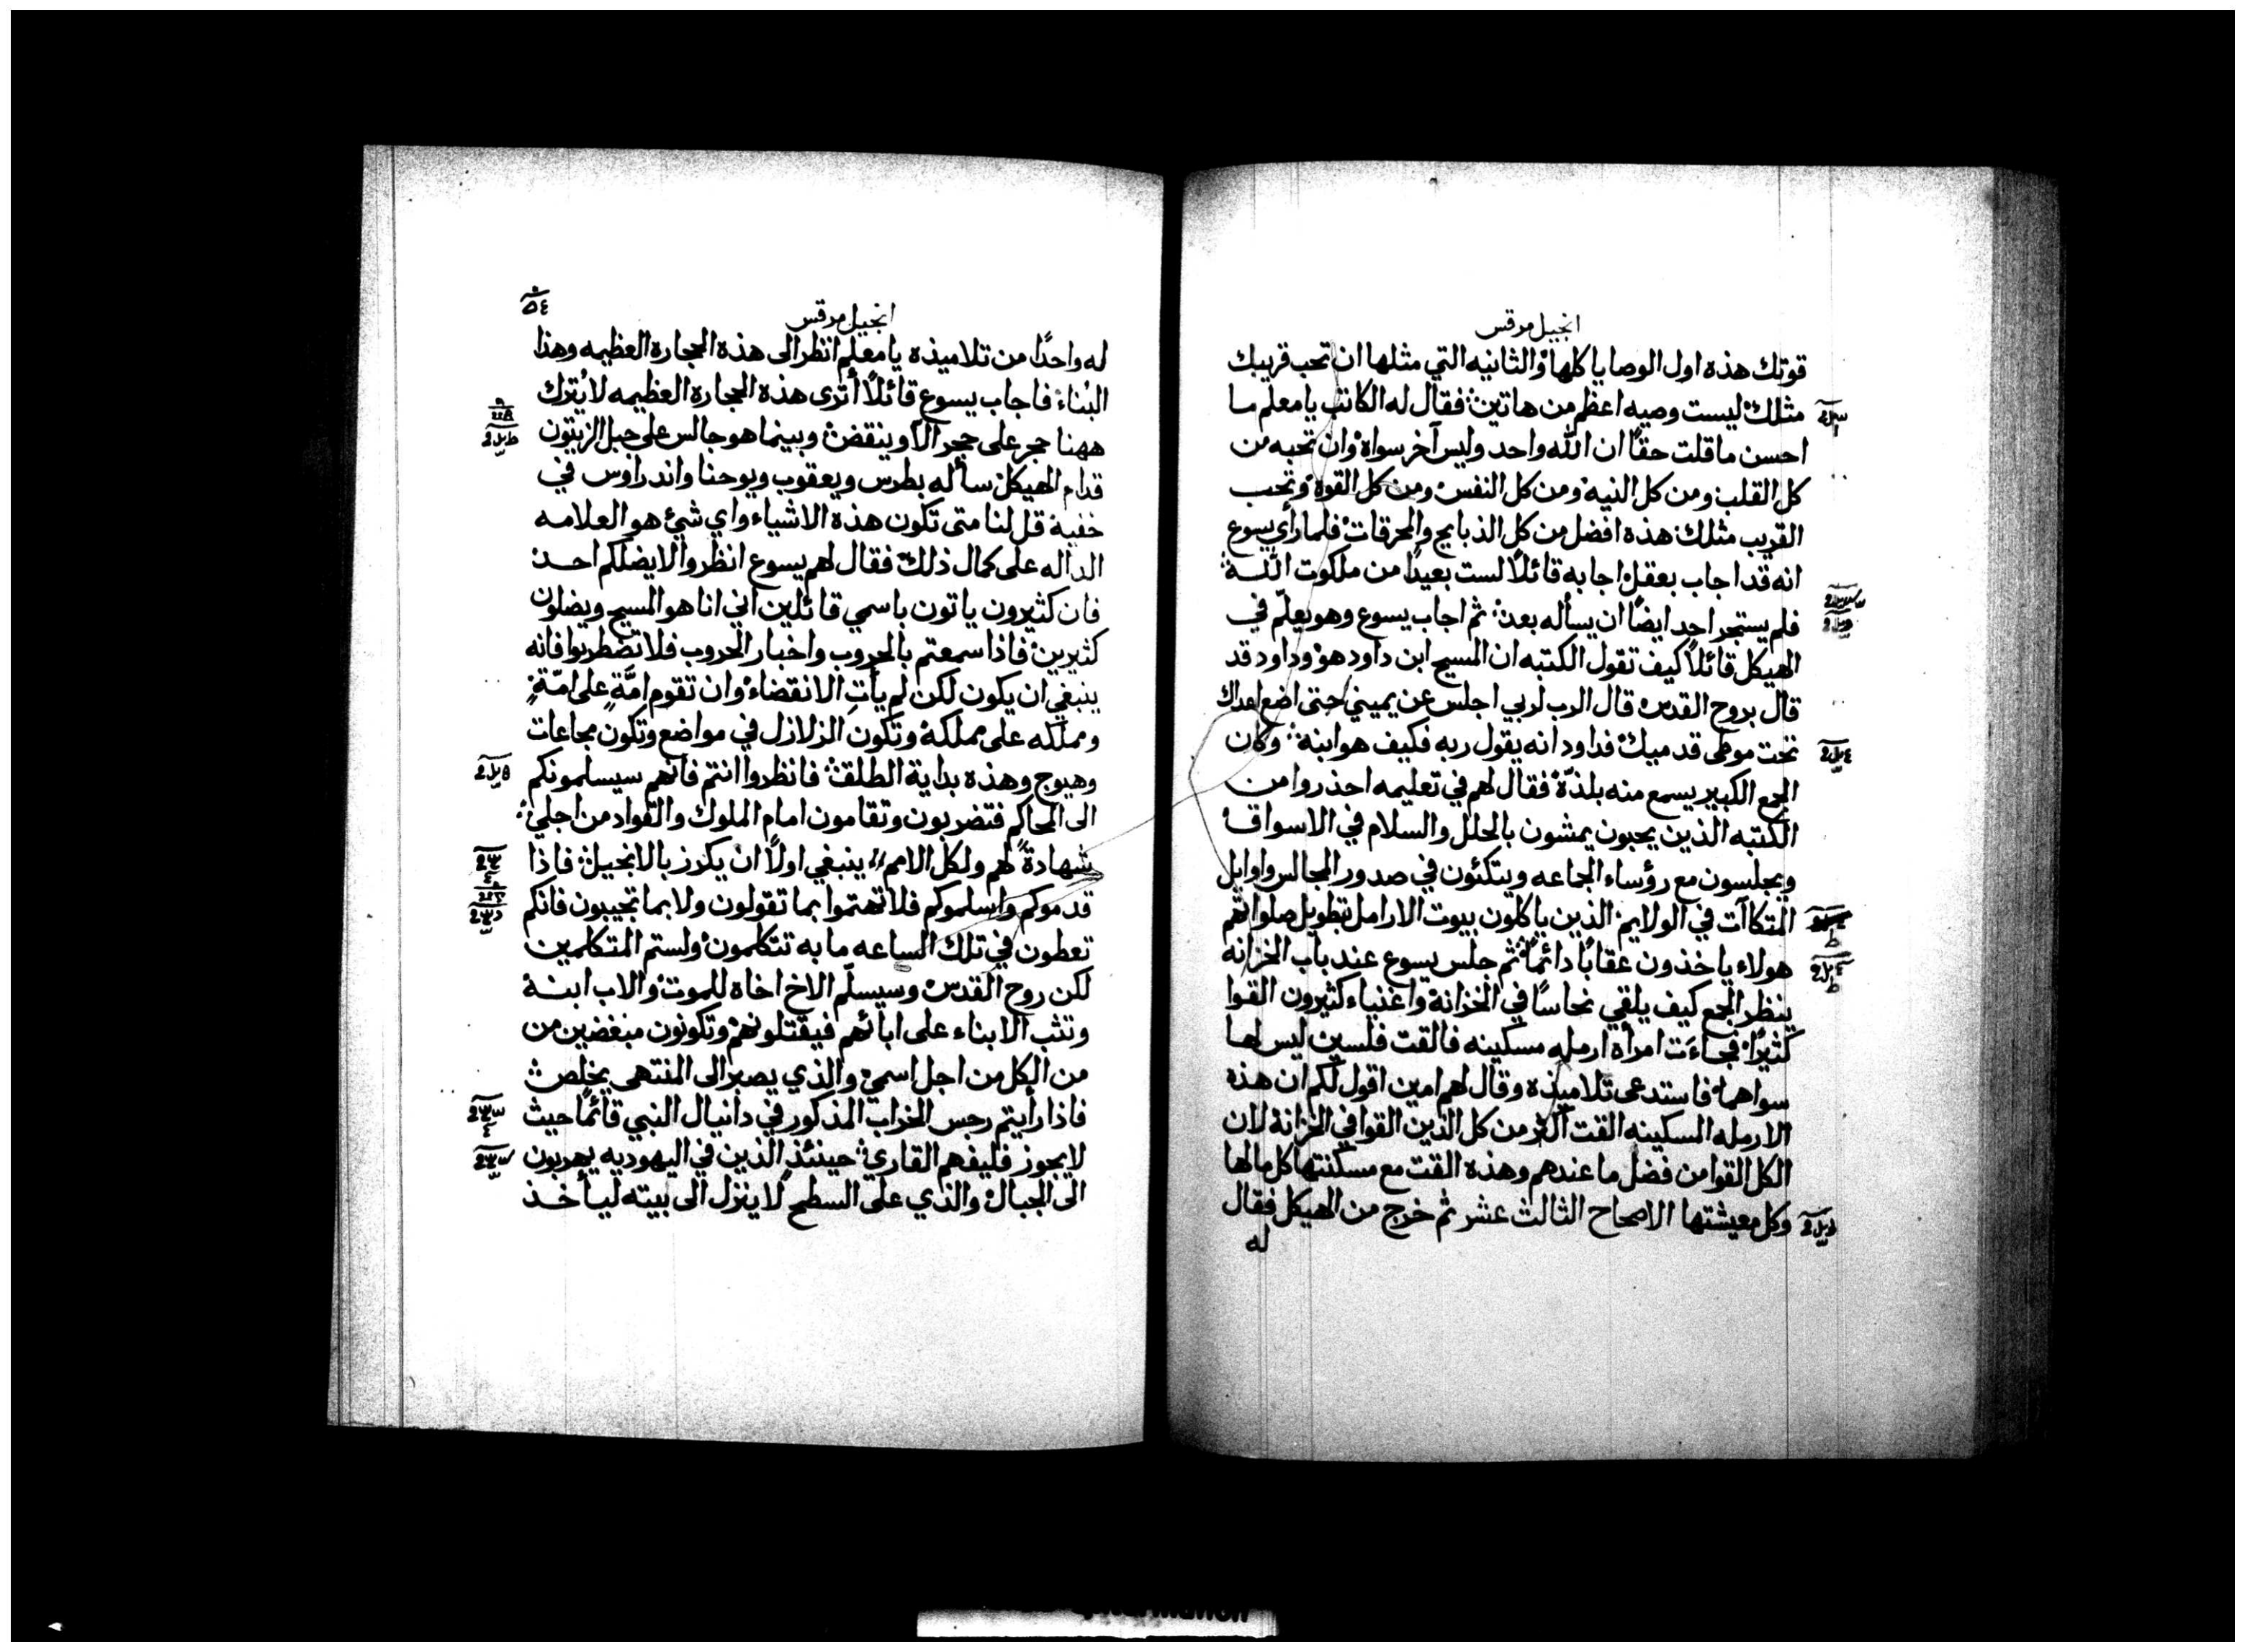 انجيل مرقس
قوتك هذه اول الوصايا كلها والثانيه التي مثلها ان تحب قريبك
مثلك ليست وصيه اعظم من هاتين فقال له الكاتب يا معلم ما
احسن ما قلت حقًا ان الله واحد وليس آخر سواه وان تحبه من
كل القلب ومن كل النيه ومن كل النفس ومن كل القوة وتحب
القريب مثلك هذه افضل من كل الذبايح والمحرقات فلما رأي يسوع
انه قد اجاب بعقل اجابه قائلًا لست بعيدًا من ملكوت الله
فلم يستجر احد ايضًا ان يسأله بعد ثم اجاب يسوع وهو يعلّم في
الهيكل قائلًا كيف تقول الكتبه ان المسيح ابن داود هو وداود قد
قال بروح القدس قال الرب لربي اجلس عن يميني حتى اضع اعداك
تحت موطى قدميك فداود انه يقول ربه فكيف هو ابنه وكان
الجمع الكبير يسمع منه بلذّة فقال لهم في تعليمه احذروا من
الكتبه الذين يحبون يمشون بالحلل والسلام في الاسواق
ويجلسون مع رؤساء الجماعه ويتكئون في صدور المجالس واوايل
المتكاآت في الولايم الذين ياكلون بيوت الارامل بتطويل صلواتهم
هولاء ياخذون عقابًا دائمًا ثم جلس يسوع عند باب الخزانه
ينظر الجمع كيف يلقي نحاسًا في الخزانة واغنياء كثيرون القوا
كثيرًا فجاءَت امرأة ارمله مسكينه فالقت فلسين ليس لها
سواهما فاستدعى تلاميذه وقال لهم امين اقول لكم ان هذه
الارمله المسكينه القت اكثر من كل الذين القوا في الخزانة لان
الكل القوا من فضل ما عندهم وهذه القت مع مسكنتها كل مالها
وكل معيشتها الاصحاح الثالث عشر ثم خرج من الهيكل فقال
له
٥٤
انجيل مرقس
له واحدًا من تلاميذه يا معلم انظر الى هذه الحجارة العظيمه وهذا
البُناء فاجاب يسوع قائلًا أترى هذه الحجارة العظيمه لا يُترك
ههنا حجر على حجر الا وينقض وبينما هو جالس على جبل الزيتون
قدام الهيكل سأله بطرس ويعقوب ويوحنا واندراوس في
خفية قل لنا متى تكون هذه الاشياء واي شئ هو العلامه
الداله على كمال ذلك فقال لهم يسوع انظروا لا يضلكم احد
فان كثيرون ياتون باسمي قائلين اني انا هو المسيح ويضلون
كثيرين فاذا سمعتم بالحروب واخبار الحروب فلا تضطربوا فانه
ينبغي ان يكون لكن لم يأتِ الانقضاء وان تقوم امَّة على امّة
ومملكه على مملكة وتكون الزلازل في مواضع وتكون مجاعات
وهيوج وهذه بداية الطلق فانظروا انتم فانهم سيسلمونكم
الى المحاكم فتضربون وتقامون امام الملوك والقواد من اجلي
شهادةً لهم ولكل الامم ينبغي اولًا ان يكرز بالانجيل فاذا
قدموكم واسلموكم فلا تهتموا بما تقولون ولا بما تجيبون فانكم
تعطون في تلك الساعه ما به تتكلمون ولستم المتكلمين
لكن روح القدس وسيسلّم الاخ اخاه للموت والاب ابنه
وتثب الابناء على ابائهم فيقتلونهم وتكونون مبغضين من
من الكل من اجل اسمي والذي يصبر الى المنتهى يخلص
فاذا رأيتم رجس الخراب المذكور في دانيال النبي قائمًا حيث
لا يجوز فليفهم القاري حينئذٍ الذين في اليهوديه يهربون
الى الجبال والذي على السطح لا ينزل الى بيته ليأخذ